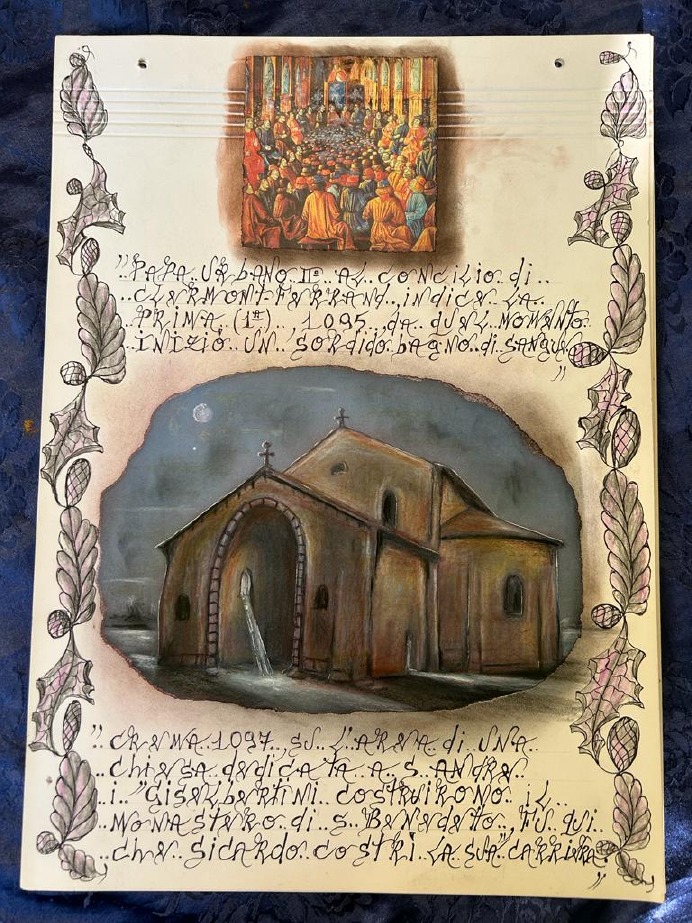 "PAPA..URBANO..II°..AL..CONCILIO..di..
..CLERMONT-FERRAND, iNdiCE..LA..
..PRIMA, (1ª).., 1095,..dA..QUEL..MOMENTO..
..iNiZiO..UN.."SORdido..bAgNO..di..SANgUE
"
"..CREMA..1097,..SU..L'AREA..di..UNA..
..ChiESA..dEdiCATA..A..S..ANdREA
..i.."GiSELbERTiNi..COSTRUiRONO..iL..
..MONASTERO..di..S..BENEdETTO", FU..QUi..
..ChE..SiCARdO..COSTRÌ..LA..SUA..CARRiERA..
"